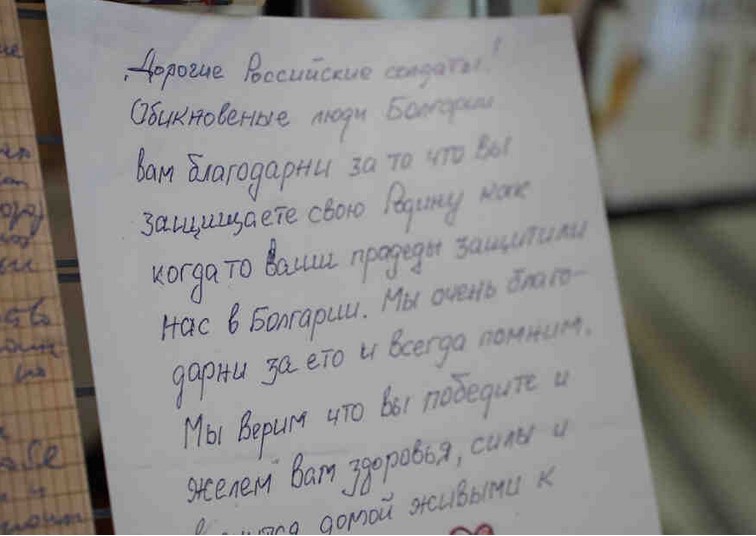 Дорогие Российские солдаты!
Обикновеные люди Болгарии
вам благодарни за то что вы
защищаете свою Родину как
когда то Ваши прадеды защитили
нас в Болгарии. Мы очень благо-
дарни за ето и всегда помним.
Мы верим что вы победите и
желем вам здоровья, силы и
домой живыми к